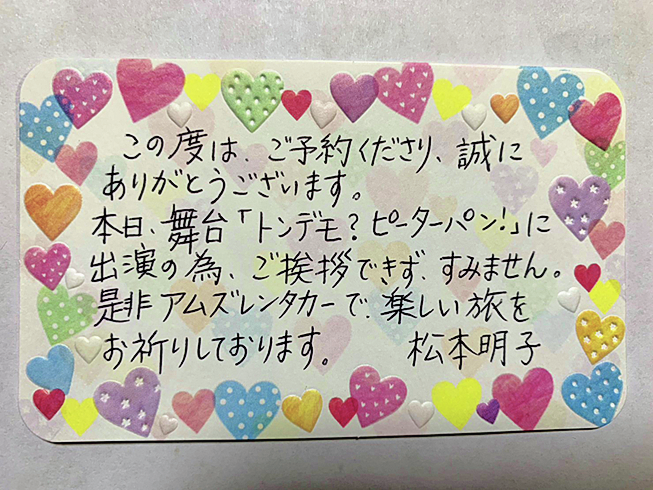 この度は、ご予約くださり、誠に
ありがとうございます。
本日、舞台「トンデモ?ピーターパン!」に
出演の為、ご挨拶できず、すみません。
是非アムズレンタカーで、楽しい旅を
お祈りしております。 松本明子